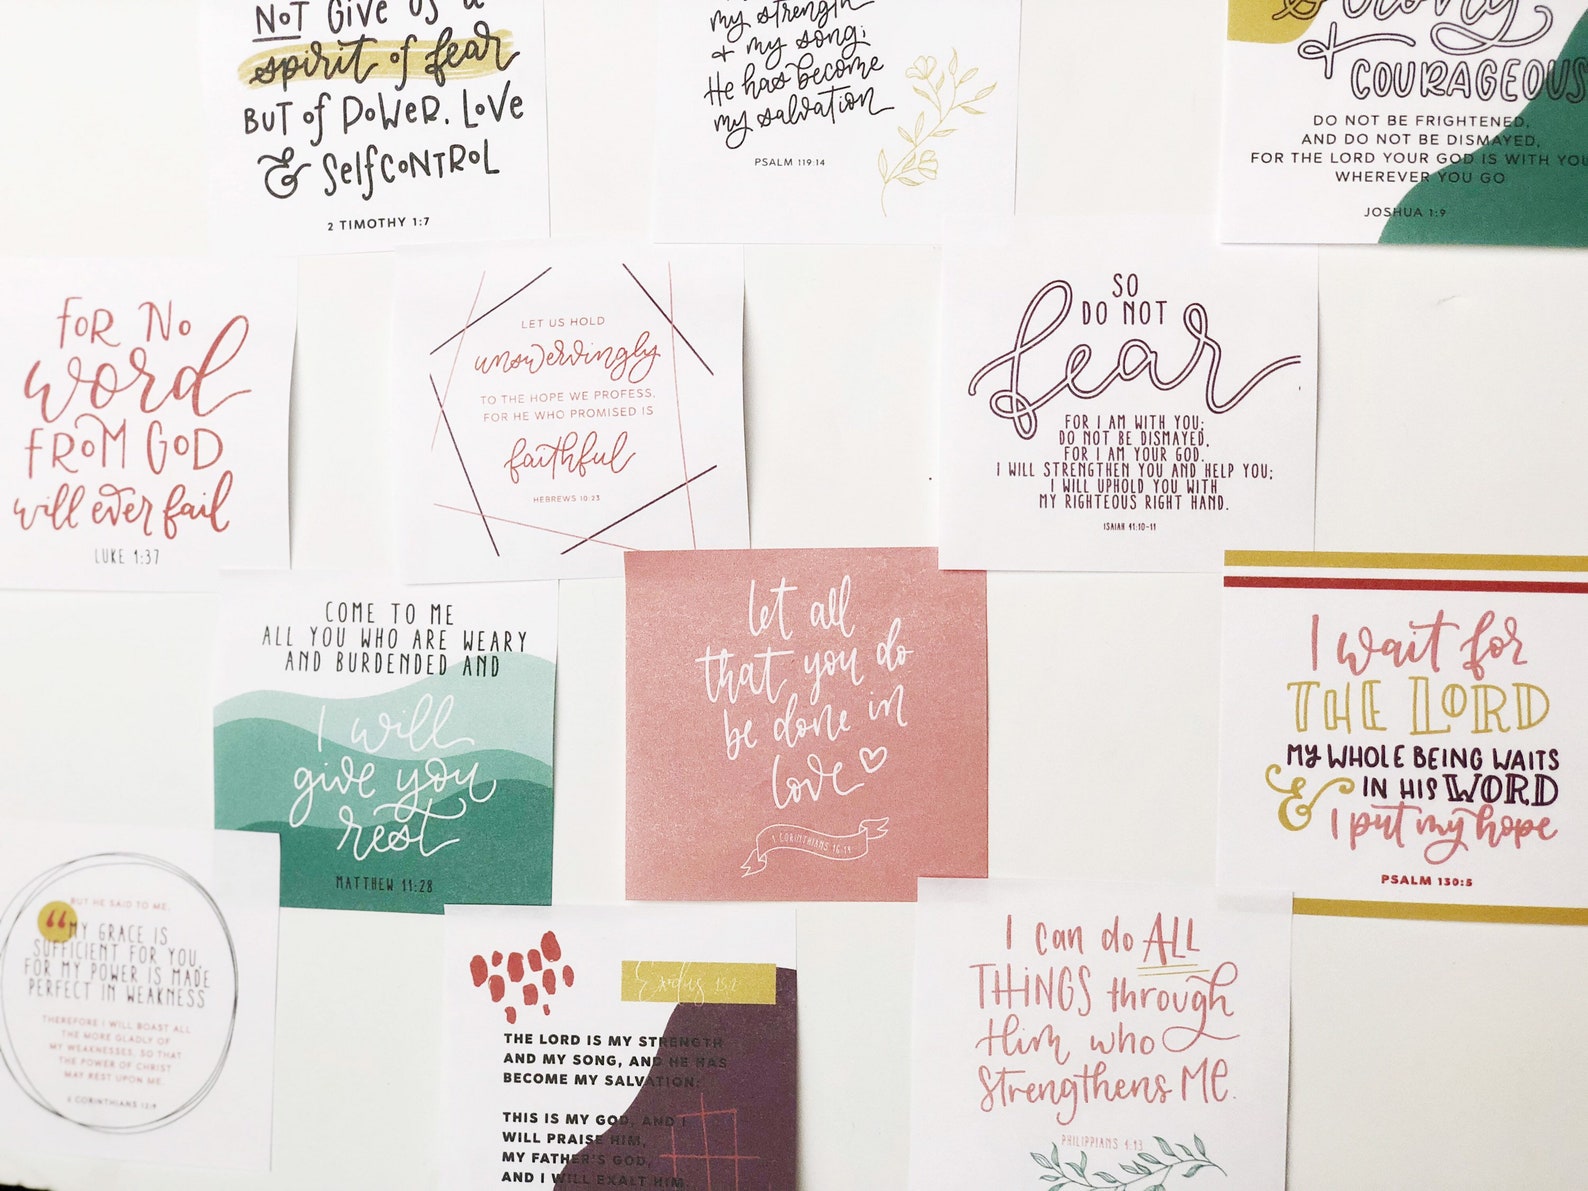 NOT GIVE US a
spirit of fear
BUT of POWER, LOVE
& SelfCONTROL
2 TIMOTHY 1:7
my strength
+ my song;
He has become
my salvation
PSALM 119:14
Strong
+ COURAGEOUS
DO NOT BE FRIGHTENED,
AND DO NOT BE DISMAYED,
FOR THE LORD YOUR GOD IS WITH YOU
WHEREVER YOU GO
JOSHUA 1:9
FOR NO
word
FROM GOD
will ever fail
LUKE 1:37
LET US HOLD
unswervingly
TO THE HOPE WE PROFESS,
FOR HE WHO PROMISED IS
faithful
HEBREWS 10:23
SO
DO NOT
fear
FOR I AM WITH YOU;
DO NOT BE DISMAYED,
FOR I AM YOUR GOD.
I WILL STRENGTHEN YOU AND HELP YOU;
I WILL UPHOLD YOU WITH
MY RIGHTEOUS RIGHT HAND.
ISAIAH 41:10-11
COME TO ME
ALL YOU WHO ARE WEARY
AND BURDENDED AND
I will
give you
rest
MATTHEW 11:28
let all
that you do
be done in
love
1 CORINTHIANS 16:14
I wait for
THE LORD
MY WHOLE BEING WAITS
IN HIS WORD
& I put my hope
PSALM 130:5
BUT HE SAID TO ME,
“MY GRACE IS
SUFFICIENT FOR YOU,
FOR MY POWER IS MADE
PERFECT IN WEAKNESS
THEREFORE I WILL BOAST ALL
THE MORE GLADLY OF
MY WEAKNESSES, SO THAT
THE POWER OF CHRIST
MAY REST UPON ME.
2 CORINTHIANS 12:9
Exodus 15:2
THE LORD IS MY STRENGTH
AND MY SONG, AND HE HAS
BECOME MY SALVATION;
THIS IS MY GOD, AND I
WILL PRAISE HIM,
MY FATHER'S GOD,
AND I WILL EXALT HIM.
I can do ALL
THINGS through
Him who
strengthens ME.
PHILIPPIANS 4:13